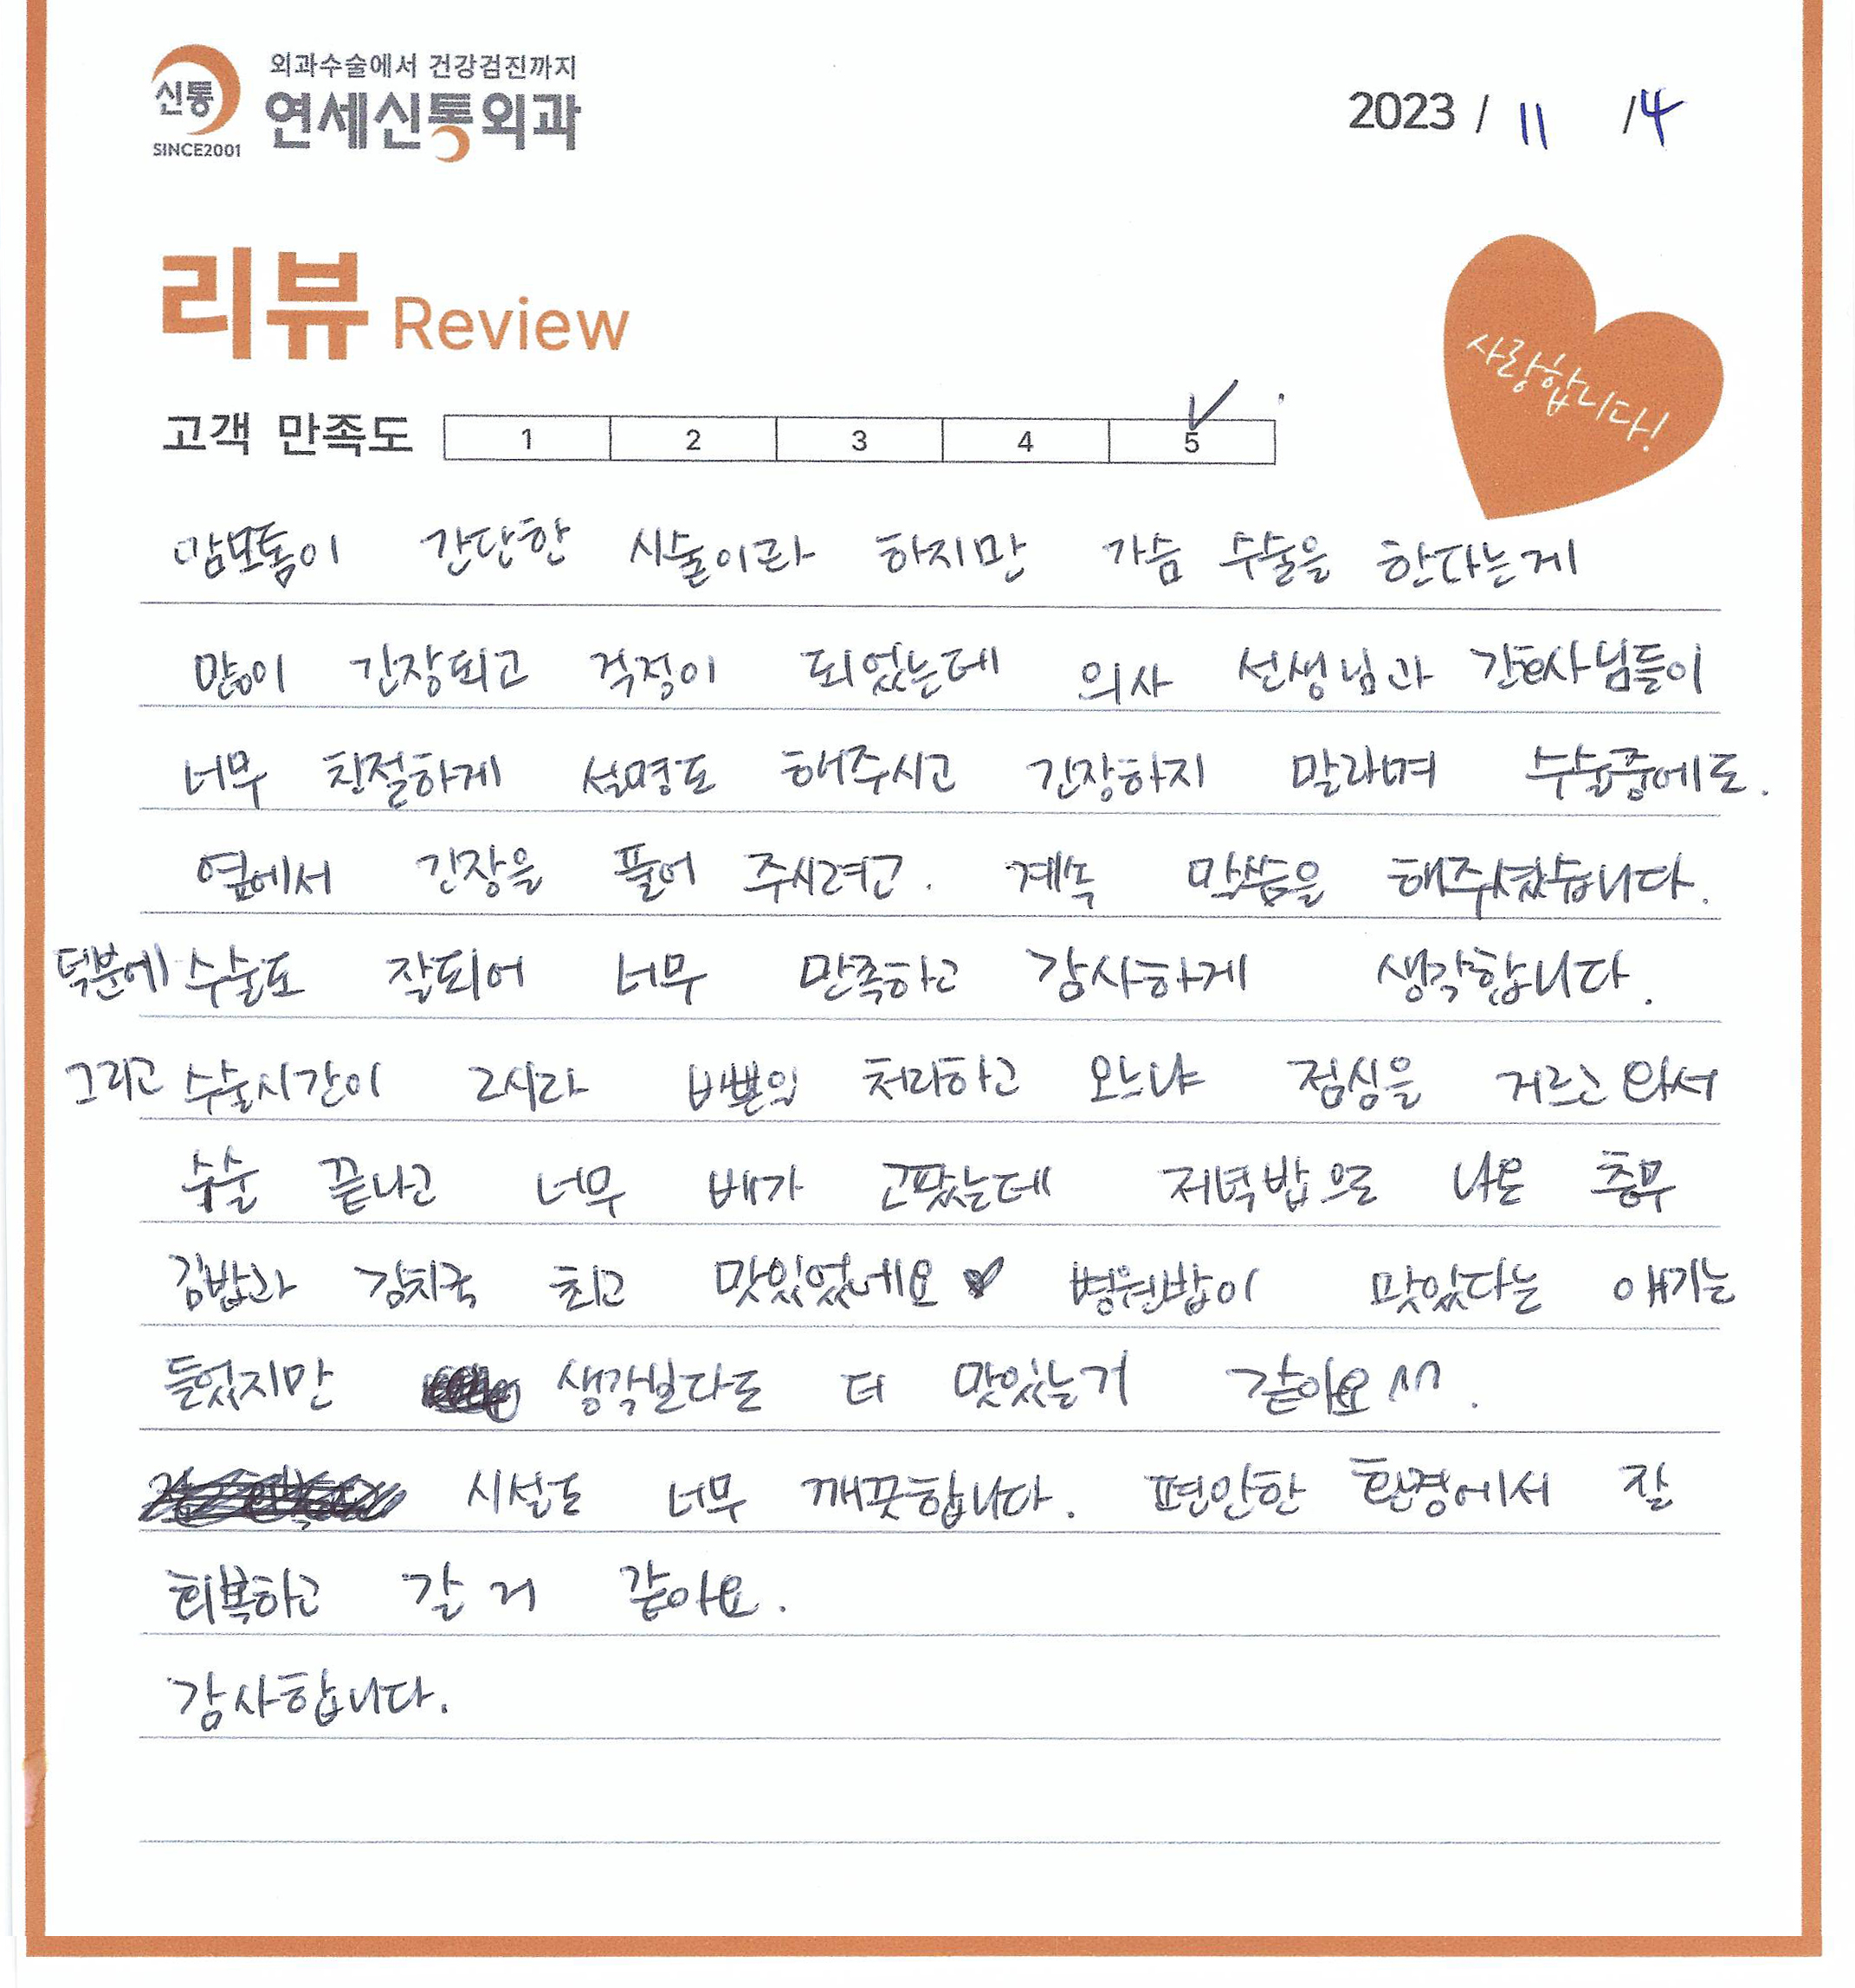 신통
SINCE2001
외과수술에서 건강검진까지
연세신통외과
2023 / 11 / 4
리뷰 Review
사랑합니다!
고객 만족도 1 2 3 4 5
맘모톰이 간단한 시술이라 하지만 가슴 수술을 한다는게
많이 긴장되고 걱정이 되었는데 의사 선생님과 간호사님들이
너무 친절하게 설명도 해주시고 긴장하지 말라며 수술중에도.
옆에서 긴장을 풀어 주시려고. 계속 말씀을 해주셨습니다.
덕분에 수술도 잘되어 너무 만족하고 감사하게 생각합니다.
그리고 수술시간이 2시라 바쁜일 처리하고 오느냐 점심을 거르고 와서
수술 끝나고 너무 배가 고팠는데 저녁밥으로 나온 충무
김밥과 김치국 최고 맛있었네요 ♥ 병원밥이 맛있다는 얘기는
들었지만 생각보다도 더 맛있는거 같아요^^.
시설도 너무 깨끗합니다. 편안한 환경에서 잘
회복하고 갈 거 같아요.
감사합니다.